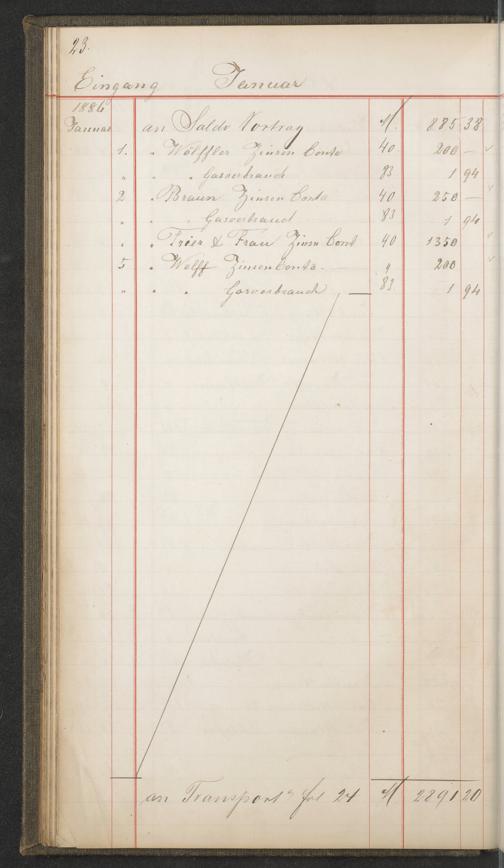 23.
Eingang Januar
1886
Januar an Saldo Vortrag M. 885 38
1. " Wölffler Zinsen Conto 40 200 —
" " " Gasverbrauch 83 1 94
2 " Braun Zinsen Conto 40 250 —
" " " Gasverbrauch 83 1 94
" " Trier & Frau Zinsen Cont 40 1350
5 " Wolff Zinsen Conto. " 200
" " " Gasverbrauch 83 1 94
an Transport fol 24 M 2891 20